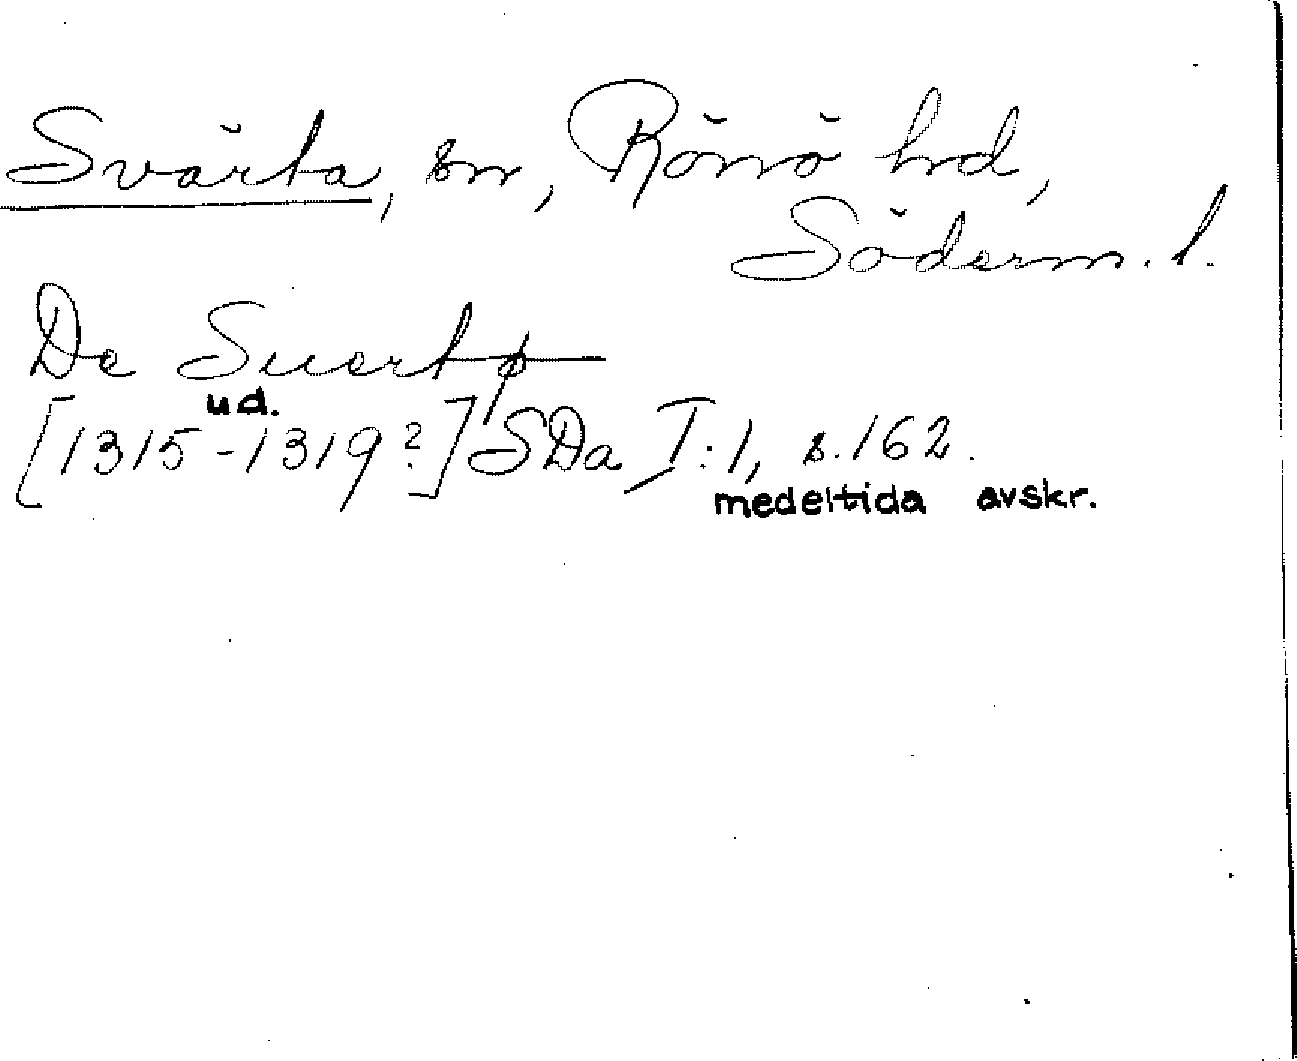 Svärta, sn, Rönö hrd,
Söderm. l.
De Suertø
ud.
[1315-1319?] SDa I:1, s. 162.
medeltida avskr.